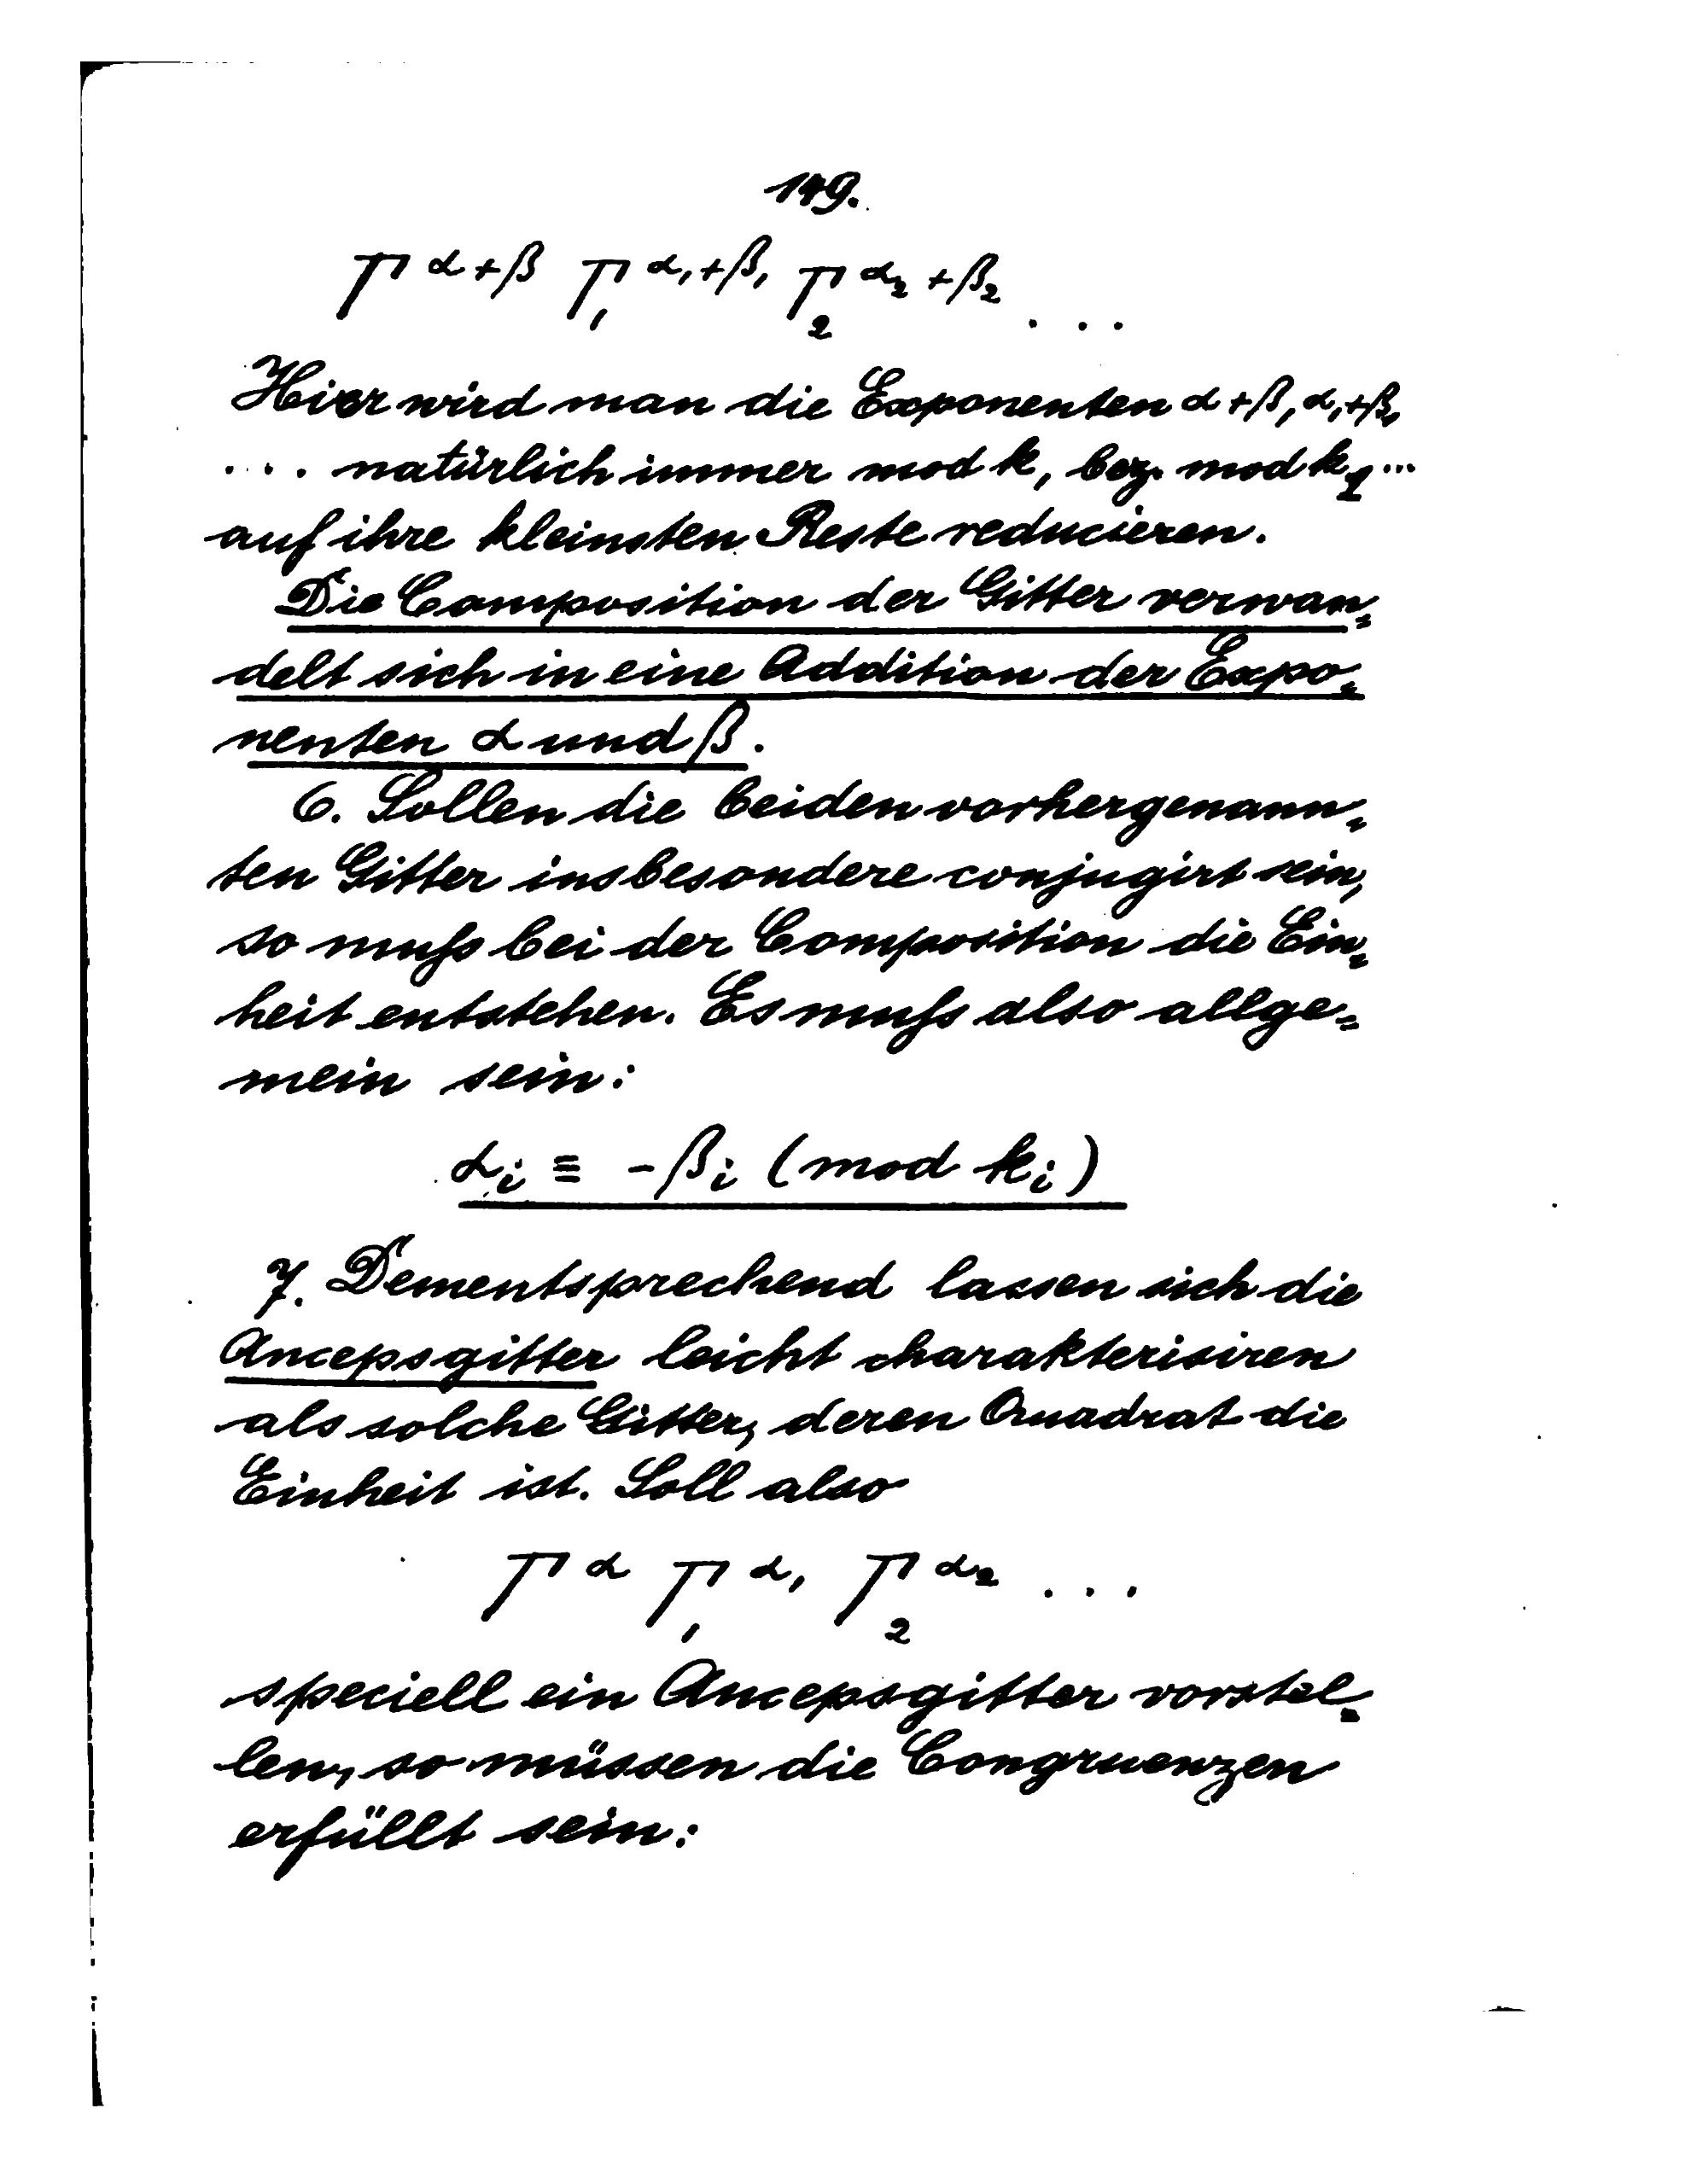 149.
Γ^{α+β} Γ_1^{α_1+β_1} Γ_2^{α_2+β_2} ...
Hier wird man die Exponenten α+β, α_1+β_1
.... natürlich immer mod k, bez. mod k_1 ...
auf ihre kleinsten Reste reducieren.
Die Composition der Gitter verwan=
delt sich in eine Addition der Expo=
nenten α und β.
6. Sollen die beiden vorhergenann=
ten Gitter insbesondere conjugirt sein,
so muß bei der Composition die Ein=
heit entstehen. Es muß also allge=
mein sein:
α_i ≡ -β_i (mod k_i)
7. Dementsprechend lassen sich die
Ancepsgitter leicht charakterisiren
als solche Gitter, deren Quadrat die
Einheit ist. Soll also
Γ^α Γ_1^{α_1} Γ_2^{α_2} ...
speciell ein Ancepsgitter vorstel=
len, so müssen die Congruenzen
erfüllt sein: